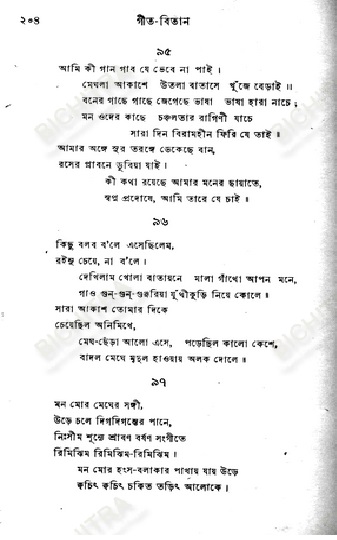 ২০৪ গীত-বিতান
৯৫
আমি কী গান গাব যে ভেবে না পাই ।
মেঘলা আকাশে উতলা বাতাসে খুঁজে বেড়াই ॥
বনের গাছে গাছে জেগেছে ভাষা ভাষা হারা নাচে ;
মন ওদের কাছে চঞ্চলতার রাগিণী যাচে
সারা দিন বিরামহীন ফিরি যে তাই ॥
আমার অঙ্গে সুর তরঙ্গে ডেকেছে বান,
রসের প্লাবনে ডুবিয়া যাই ।
কী কথা রয়েছে আমার মনের ছায়াতে,
স্বপ্ন প্রদোষে, আমি তারে যে চাই ।
৯৬
কিছু বলব ব'লে এসেছিলেম,
রইনু চেয়ে, না ব'লে ।
দেখিলাম খোলা বাতায়নে মালা গাঁথো আপন মনে,
গাও গুন্-গুন্-গুঞ্জরিয়া যূঁথীকুঁড়ি নিয়ে কোলে ॥
সারা আকাশ তোমার দিকে
চেয়েছিল অনিমিখে,
মেঘ-ছেঁড়া আলো এসে, পড়েছিল কালো কেশে,
বাদল মেঘে মৃদুল হাওয়ায় অলক দোলে ॥
৯৭
মন মোর মেঘের সঙ্গী,
উড়ে চলে দিগ্‌দিগন্তের পানে,
নিঃসীম শূন্যে শ্রাবণ বর্ষণ সংগীতে
রিমিঝিম রিমিঝিম-রিমিঝিম ॥
মন মোর হংস-বলাকার পাখায় যায় উড়ে
ক্বচিৎ ক্বচিৎ চকিত তড়িৎ আলোকে ।
BICHITRA